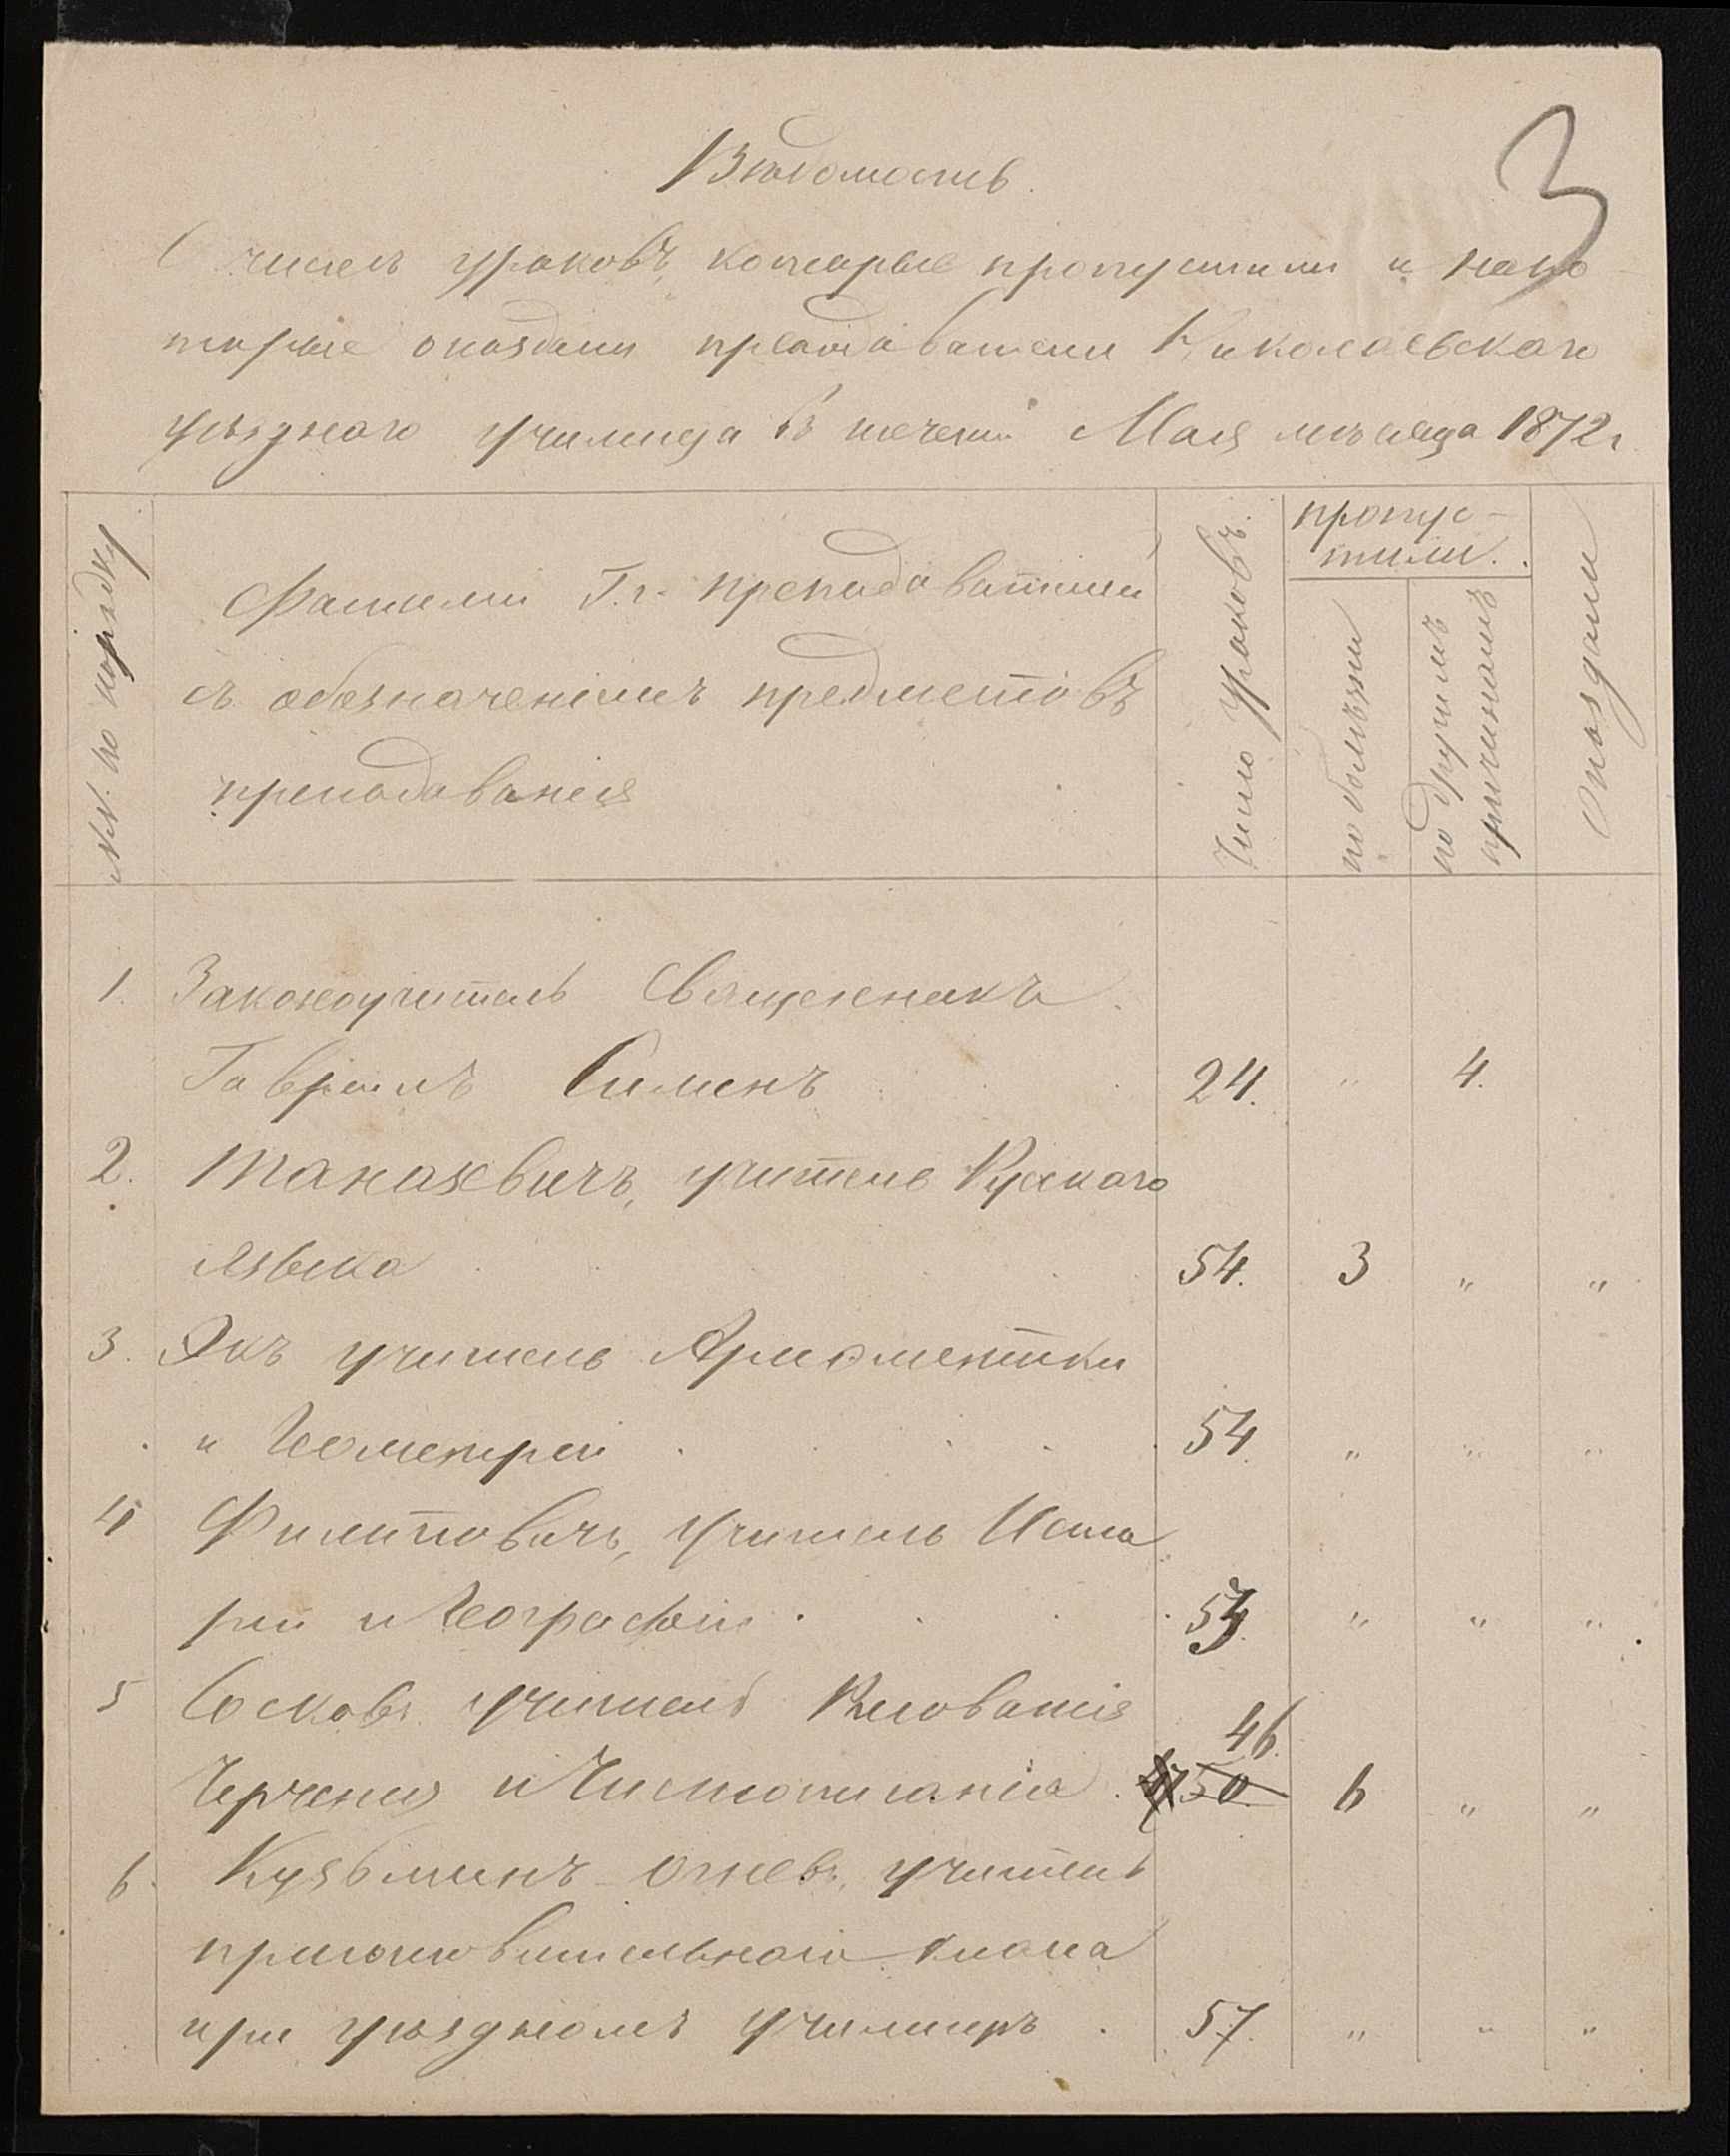 3
Вѣдомость.
О числѣ уроковъ, которые пропустили и на ко-
торые опоздали преподаватели Николаевскаго
уѣзднаго училища въ теченіи Мая мѣсяца 1872 г
№№. по порядку
Фамиліи Г.г. преподавателей
съ обозначеніемъ предметовъ
преподаванія
Число уроковъ.
пропус-
тили.
по болѣзни
по другимъ
причинамъ
Опоздали
1. Законоучитель Священникъ
Гавріилъ Силинъ 24. " 4.
2. Танасевичъ, учитель Рускаго
языка 54. 3 " "
3. Якъ учитель Арѳметики
и Геометріи 54. " " "
4 Филиповичъ, учитель Исто
ріи и Географіи . 54. " " "
5 Сосковъ учитель Рисованія 46.
Черченія и Чистописанія . 50. 6 " "
6. Кузьминъ-Огневъ, учитель
приготовительнаго класа
при уѣздномъ училищѣ . 57. " " "